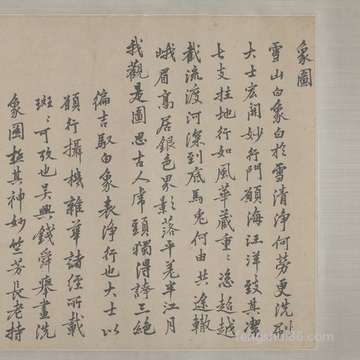 象圖
雪山白象白於雪清淨何勞更洗刷
大士宏開妙行門願海汪洋致其潔
七支拄地行如風華藏重〻恣超越
截流渡河深到底馬兔何由共途轍
峨眉高居銀色界影落平羌半江月
我觀是圖思古人虎頭獨得誇三絕
徧吉馭白象表淨行也大士以
願行攝機雜華諸經所載
斑〻可攷也吳興錢舜舉畫洗
象圖極其神妙竺芳長老持